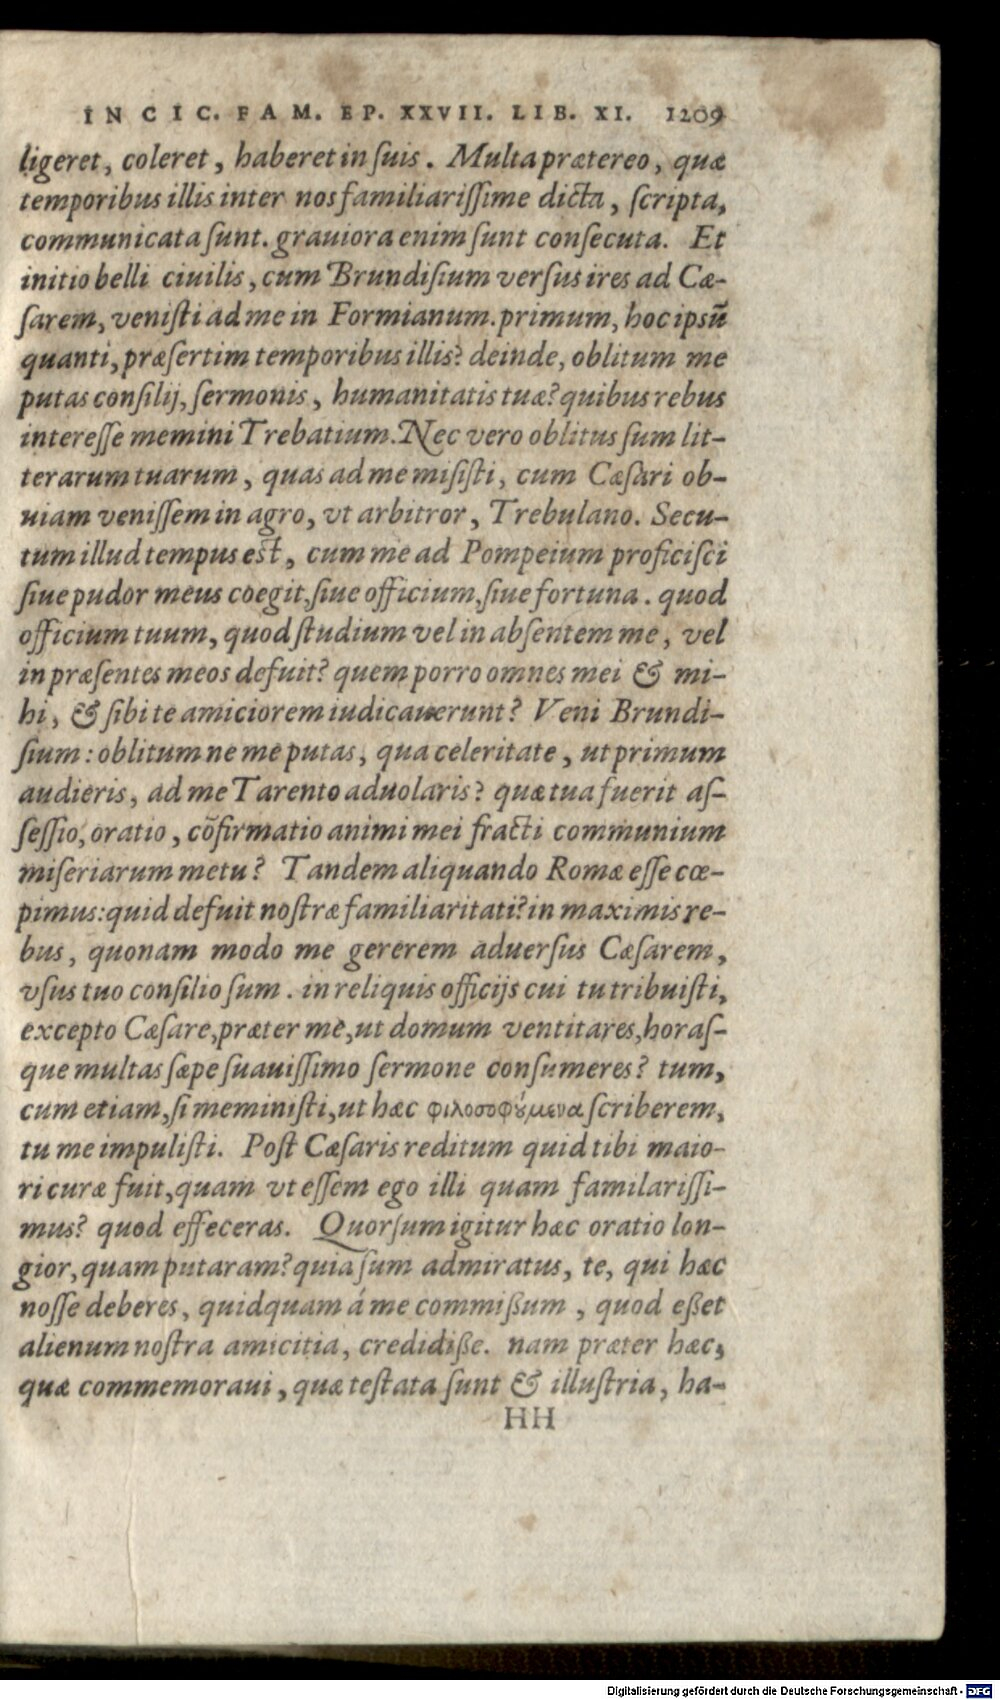 IN CIC. FAM. EP. XXVII. LIB. XI. 1209
ligeret, coleret, haberet in ſuis. Multa prætereo, quæ
temporibus illis inter nos familiariſſime dicta, ſcripta,
communicata ſunt. grauiora enim ſunt conſecuta. Et
initio belli ciuilis, cum Brundiſium verſus ires ad Cæ-
ſarem, veniſti ad me in Formianum. primum, hoc ipsũ
quanti, præſertim temporibus illis? deinde, oblitum me
putas conſilij, ſermonis, humanitatis tuæ? quibus rebus
intereſſe memini Trebatium. Nec vero oblitus ſum lit-
terarum tuarum, quas ad me miſiſti, cum Cæſari ob-
uiam veniſſem in agro, vt arbitror, Trebulano. Secu-
tum illud tempus est, cum me ad Pompeium proficiſci
ſiue pudor meus coegit, ſiue officium, ſiue fortuna. quod
officium tuum, quod ſtudium vel in abſentem me, vel
in præſentes meos defuit? quem porro omnes mei & mi-
hi, & ſibi te amiciorem iudicauerunt? Veni Brundi-
ſium: oblitum ne me putas, qua celeritate, ut primum
audieris, ad me Tarento aduolaris? quæ tua fuerit aſ-
ſeſſio, oratio, cõfirmatio animi mei fracti communium
miſeriarum metu? Tandem aliquando Romæ eſſe cœ-
pimus: quid defuit noſtræ familiaritati? in maximis re-
bus, quonam modo me gererem aduerſus Cæſarem,
vſus tuo conſilio ſum. in reliquis officijs cui tu tribuiſti,
excepto Cæſare, præter me, ut domum ventitares, horaſ-
que multas ſæpe ſuauiſſimo ſermone conſumeres? tum,
cum etiam, ſi meminiſti, ut hæc φιλοσοφȣ́μενα ſcriberem,
tu me impuliſti. Poſt Cæſaris reditum quid tibi maio-
ri curæ fuit, quam vt eſſem ego illi quam familariſſi-
mus? quod effeceras. Quorſum igitur hæc oratio lon-
gior, quam putaram? quia ſum admiratus, te, qui hæc
noſſe deberes, quidquam á me commißum, quod eßet
alienum noſtra amicitia, credidiße. nam præter hæc,
quæ commemoraui, quæ teſtata ſunt & illuſtria, ha-
HH
Digitalisierung gefördert durch die Deutsche Forschungsgemeinschaft - DFG